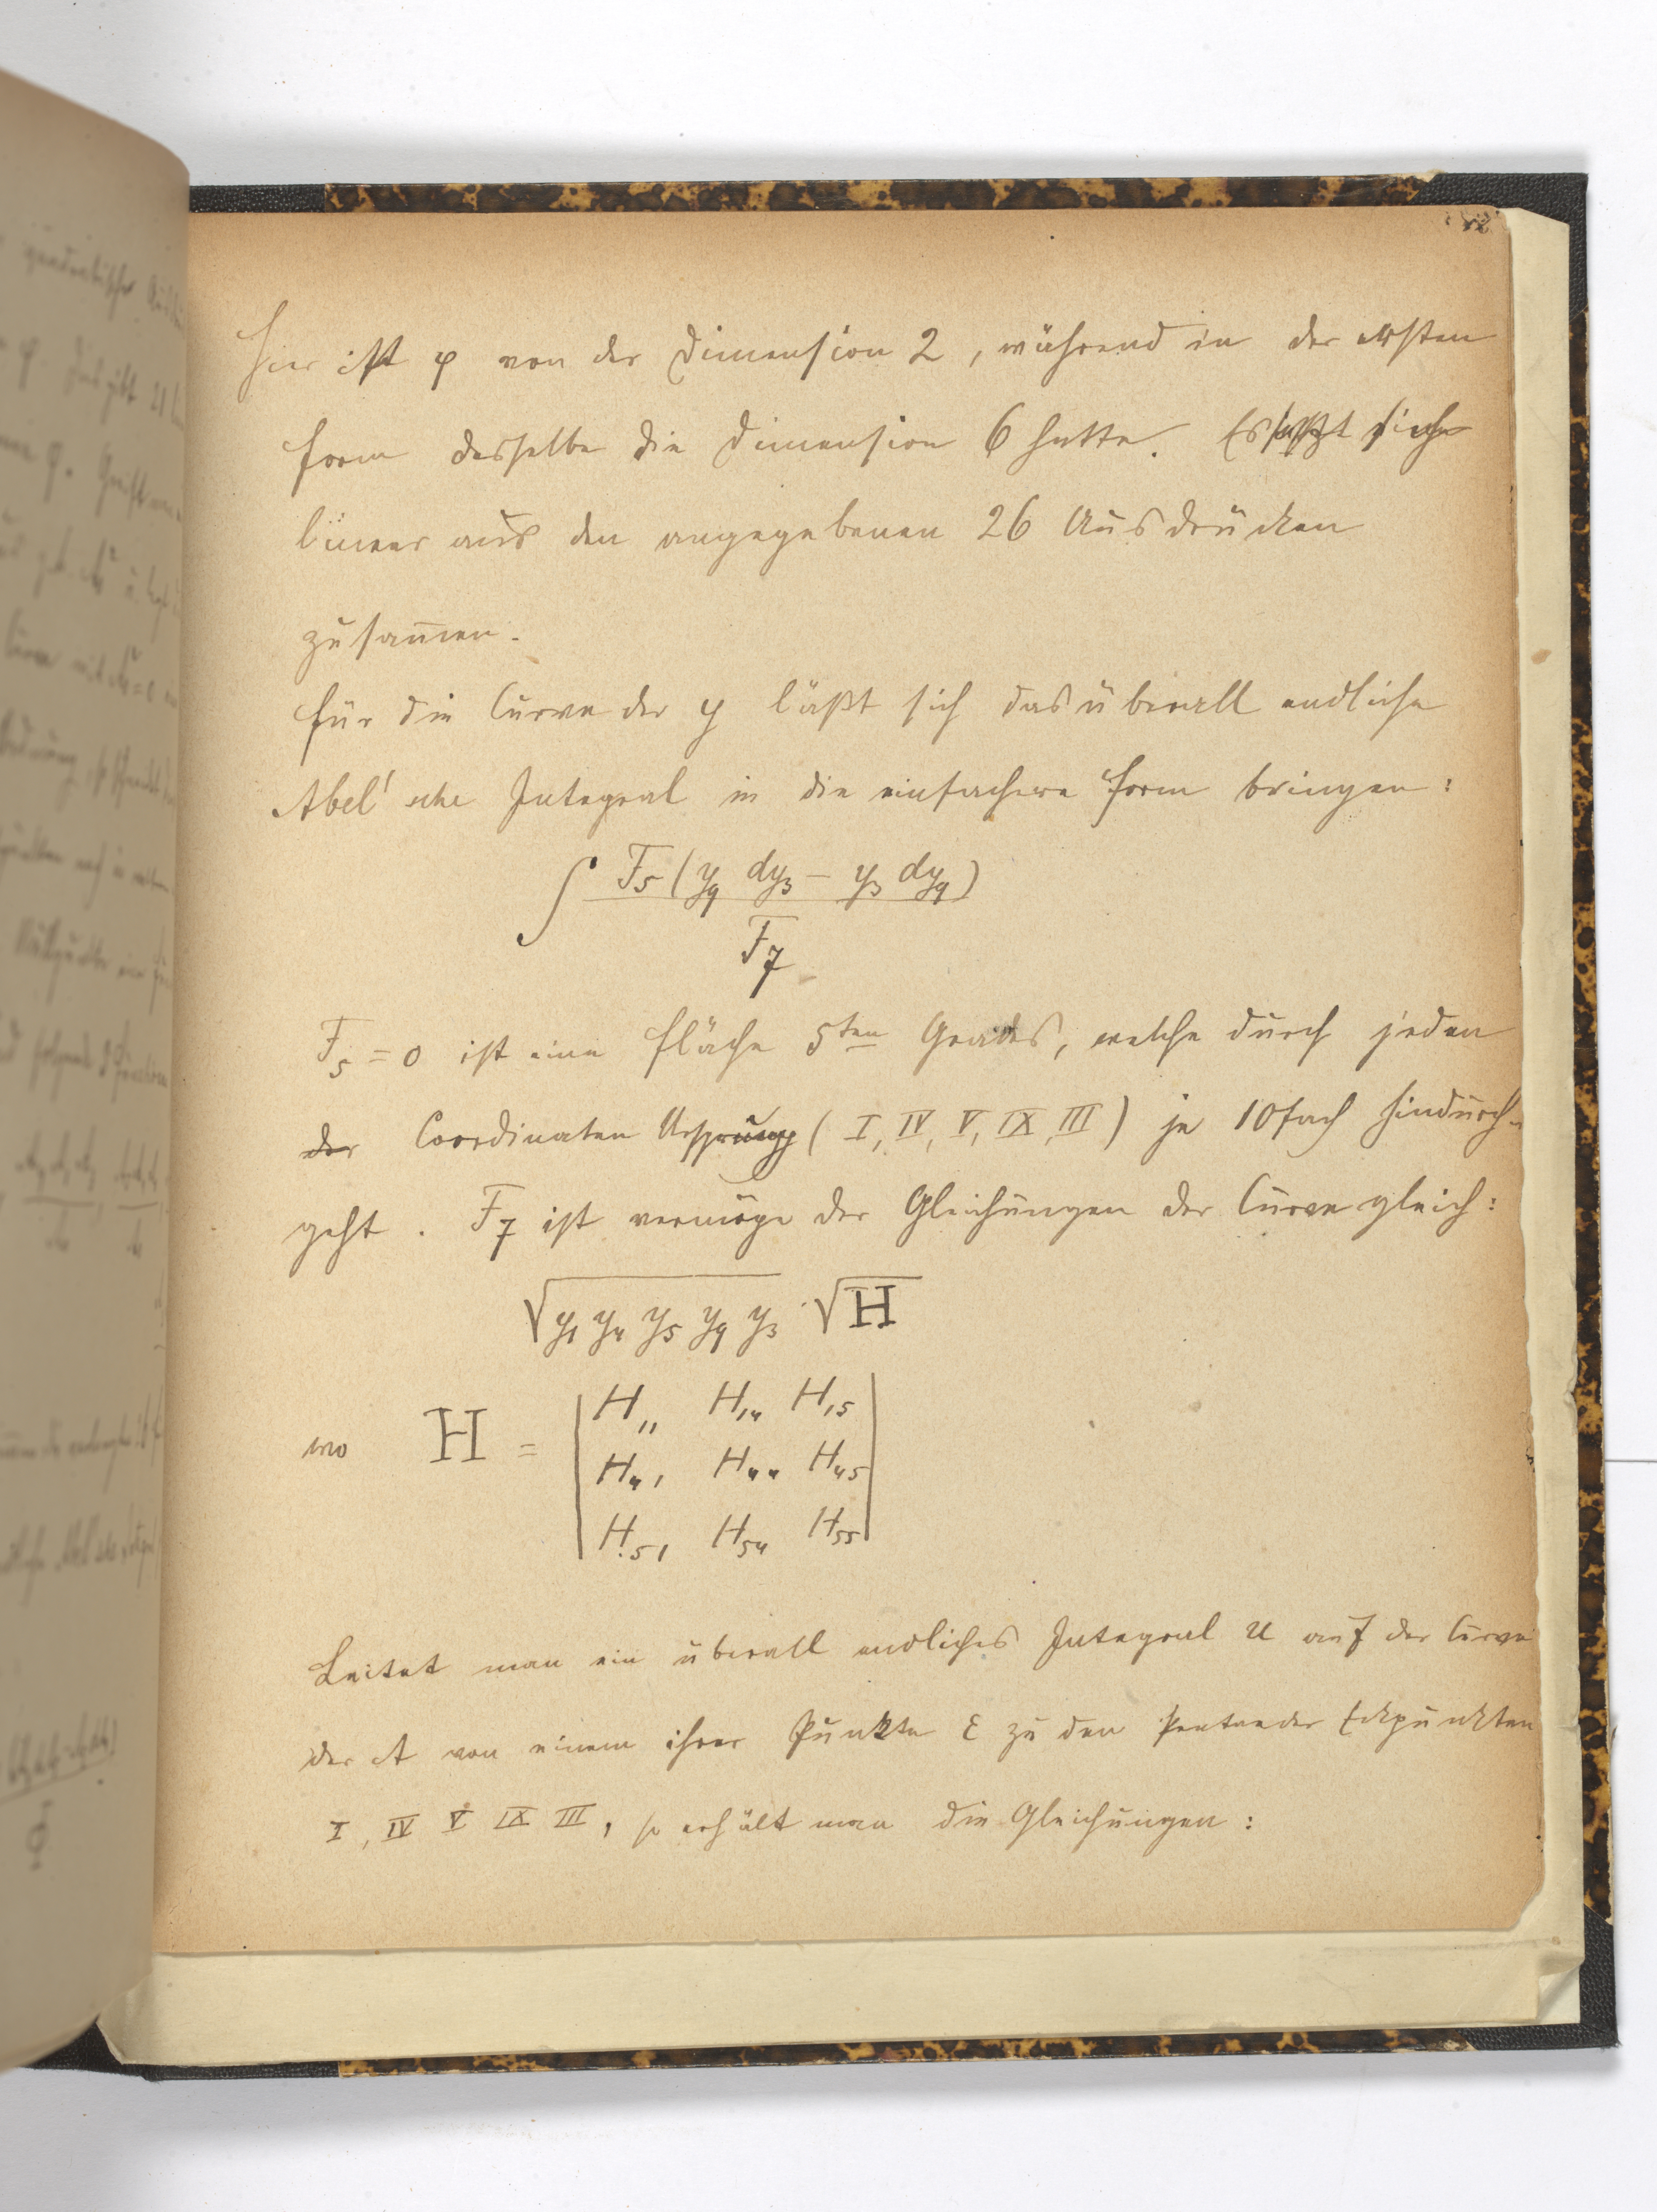 Hier ist φ von der Dimension 2, während in der ersten
Form dasselbe die Dimension 6 hatte. Es setzt sich
linear aus den angegebenen 26 Ausdrücken
zusam̄en.
Für die Curve der y läßt sich das überall endliche
Abel'sche Integral in die einfachere Form bringen:
∫ F₅ (y₉ dy₃ − y₃ dy₉) / F₇
F₅ = 0 ist eine Fläche 5ten Grades, welche durch jeden
der Coordinaten Ursprung (I, IV, V, IX, III) je 10fach hindurch-
geht. F₇ ist vermöge der Gleichungen der Curve gleich:
√(y₁ y₄ y₅ y₉ y₃) · √H
wo H = | H₁₁ H₁₄ H₁₅ |
| H₄₁ H₄₄ H₄₅ |
| H₅₁ H₅₄ H₅₅ |
Leitet man ein überall endliches Integral u auf der Curve
der A von einem ihrer Punkte ε zu den Pentaeder Eckpunkten
I, IV V IX III, so erhält man die Gleichungen: